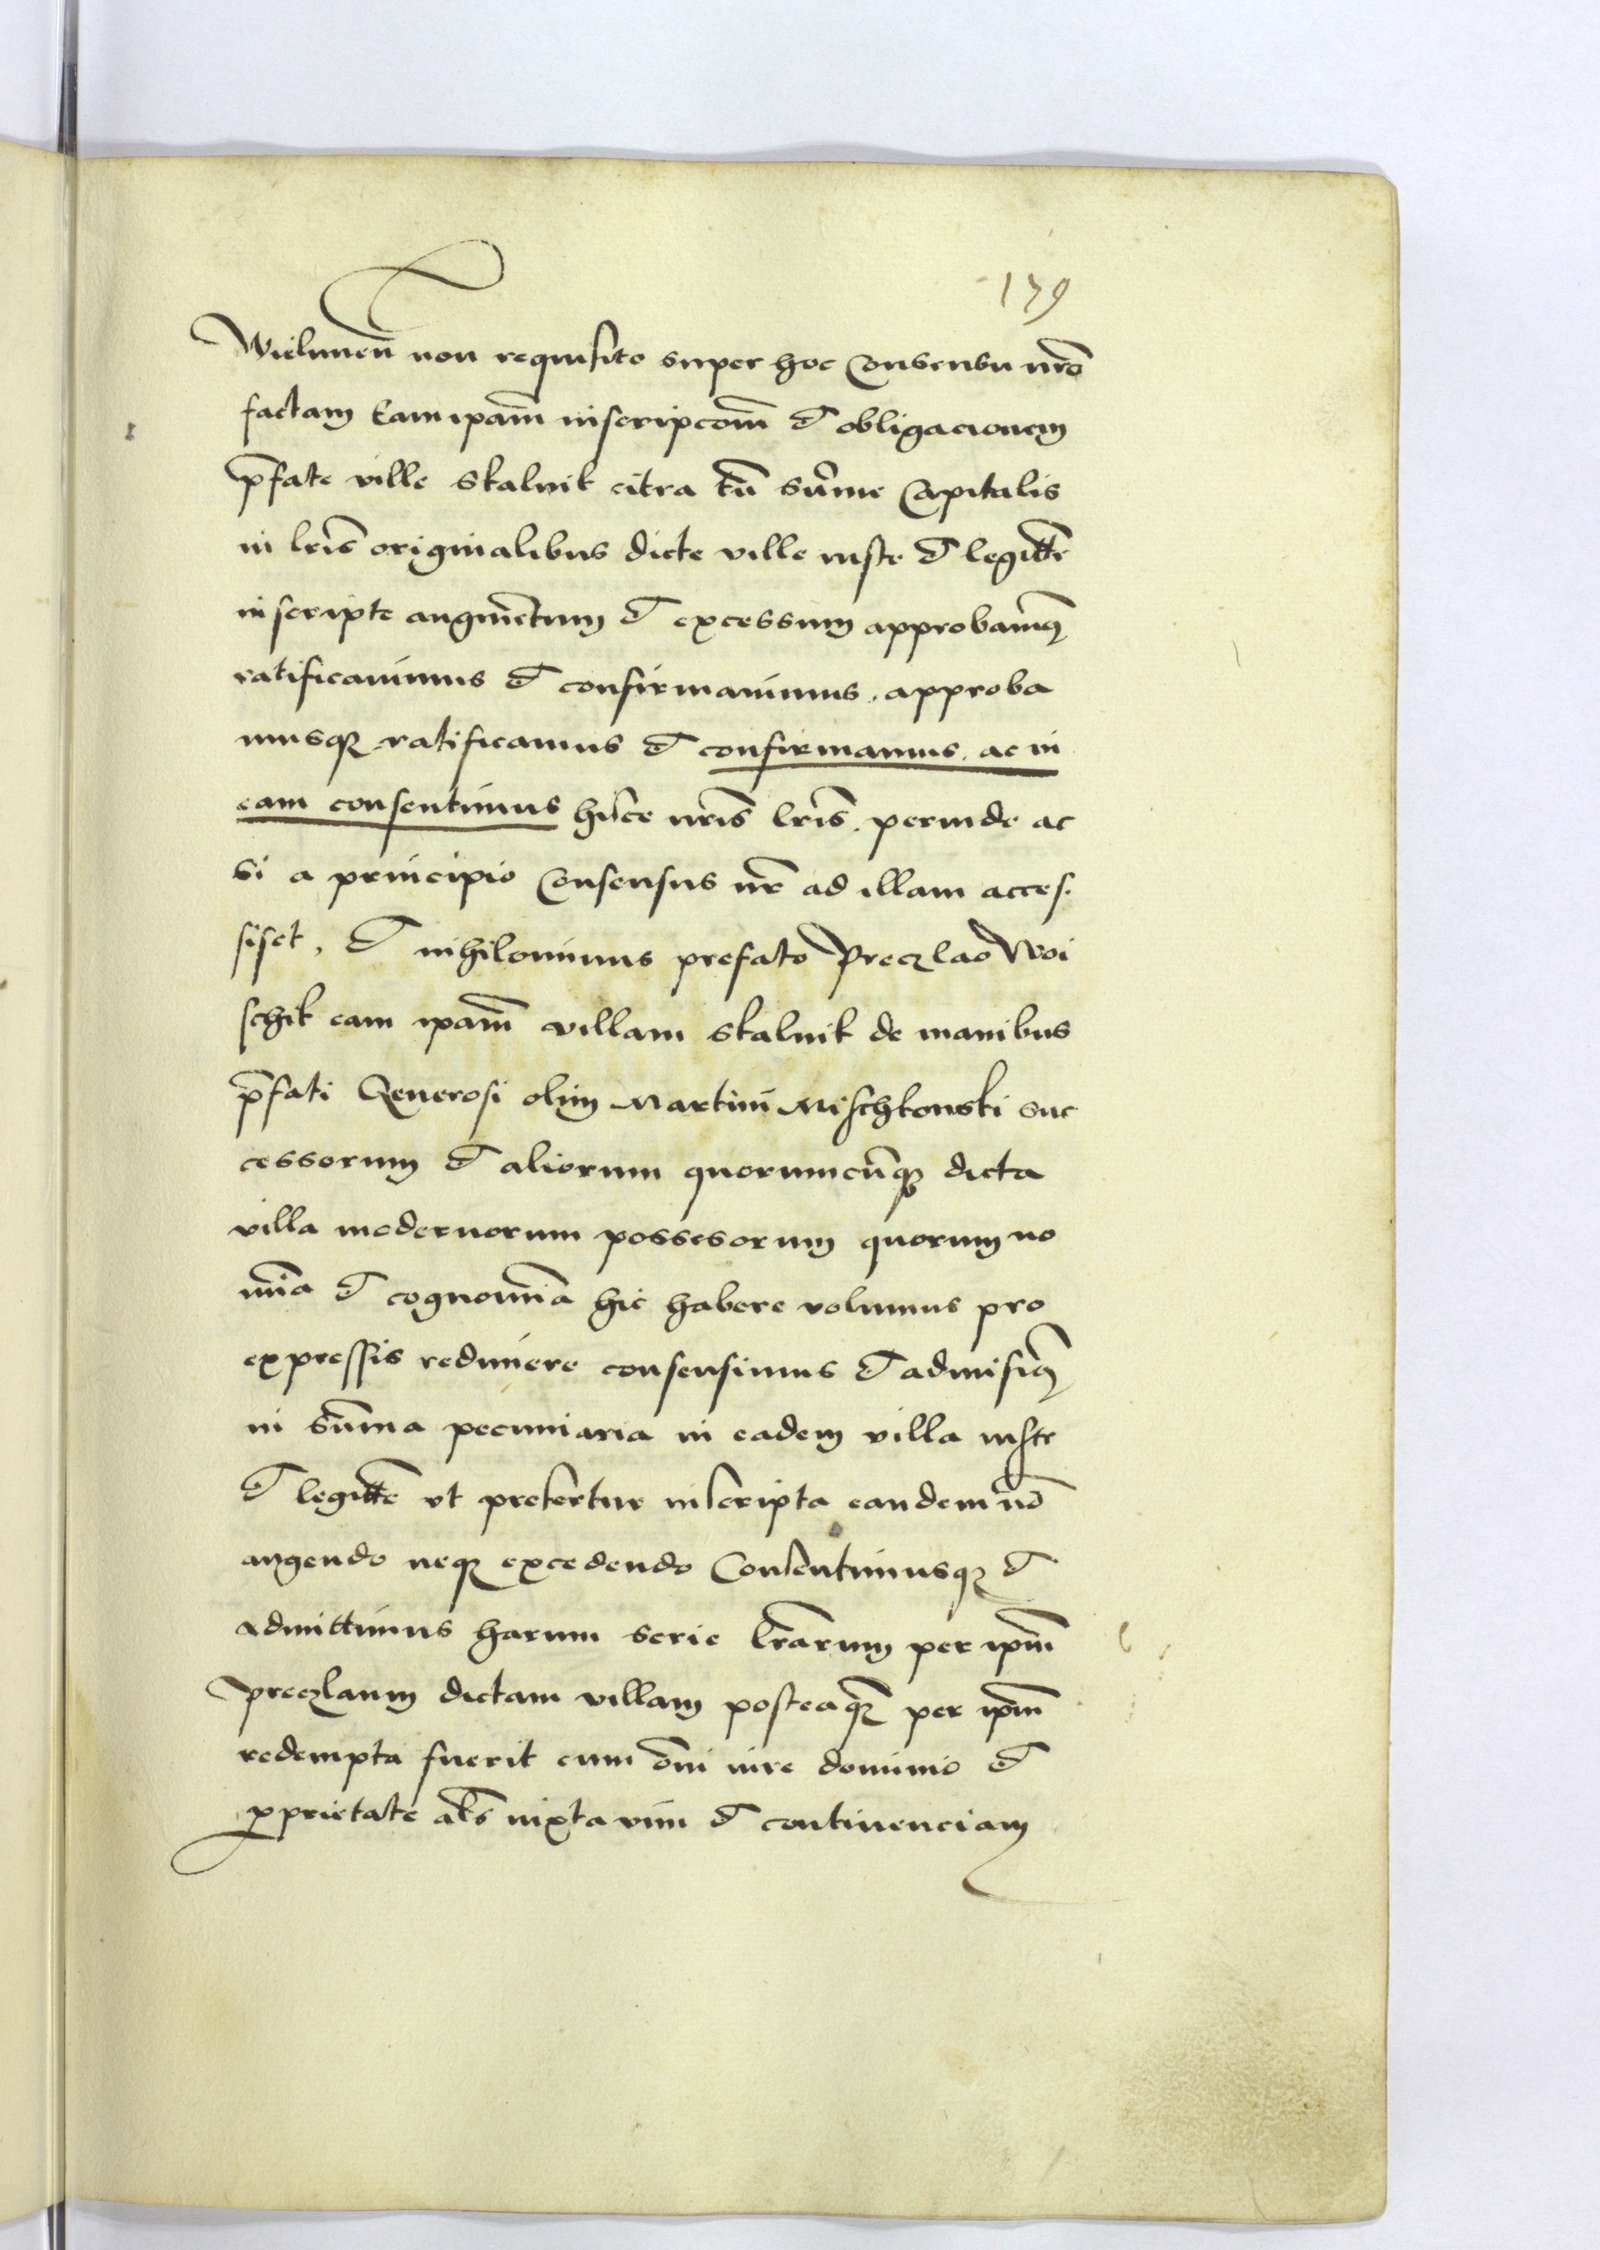 179
Wielunen̄ non requisito super hoc Consensu nr̄o
factam Eam ipam̄ inscripcom̄ et obligacionem
p̄fate ville Skalnik citra tn̄ sum̄e Capitalis
in lr̄is originalibus dicte ville iuste et legitt̄e
inscripte augmētum et excessum approbauim9
ratificauimus et confirmauimus. approba
musqȝ ratificamus et confirmamus. ac in
eam consentimus hiis̄ce nr̄is lr̄is. perinde ac
si a principio Consensus nr̄ ad illam acces.
siset, et nihilominus prefato Preczlao Woi
schik eam ipam̄ villam Skalnik de manibus
p̄fati Generosi olim Martini Mischkonski suc
cessorum et aliorum quorumcūqȝ dicta
villa modernorum possesorum quorum no
mīa et cognomīa hic habere volumus pro
expressis redimere consensimus et admisim9
in sūma pecuniaria in eadem villa iuste
et legitt̄e vt prefertur inscripta eandem nō
augendo neqȝ excedendo Consentimusqȝ et
admittimus harum serie lr̄arum per ipm̄
Preczlaum dictam villam posteaqȝ per ipm̄
redempta fuerit cum om̄i iure dominio et
proprietate al̄s iuxta vim et continenciam